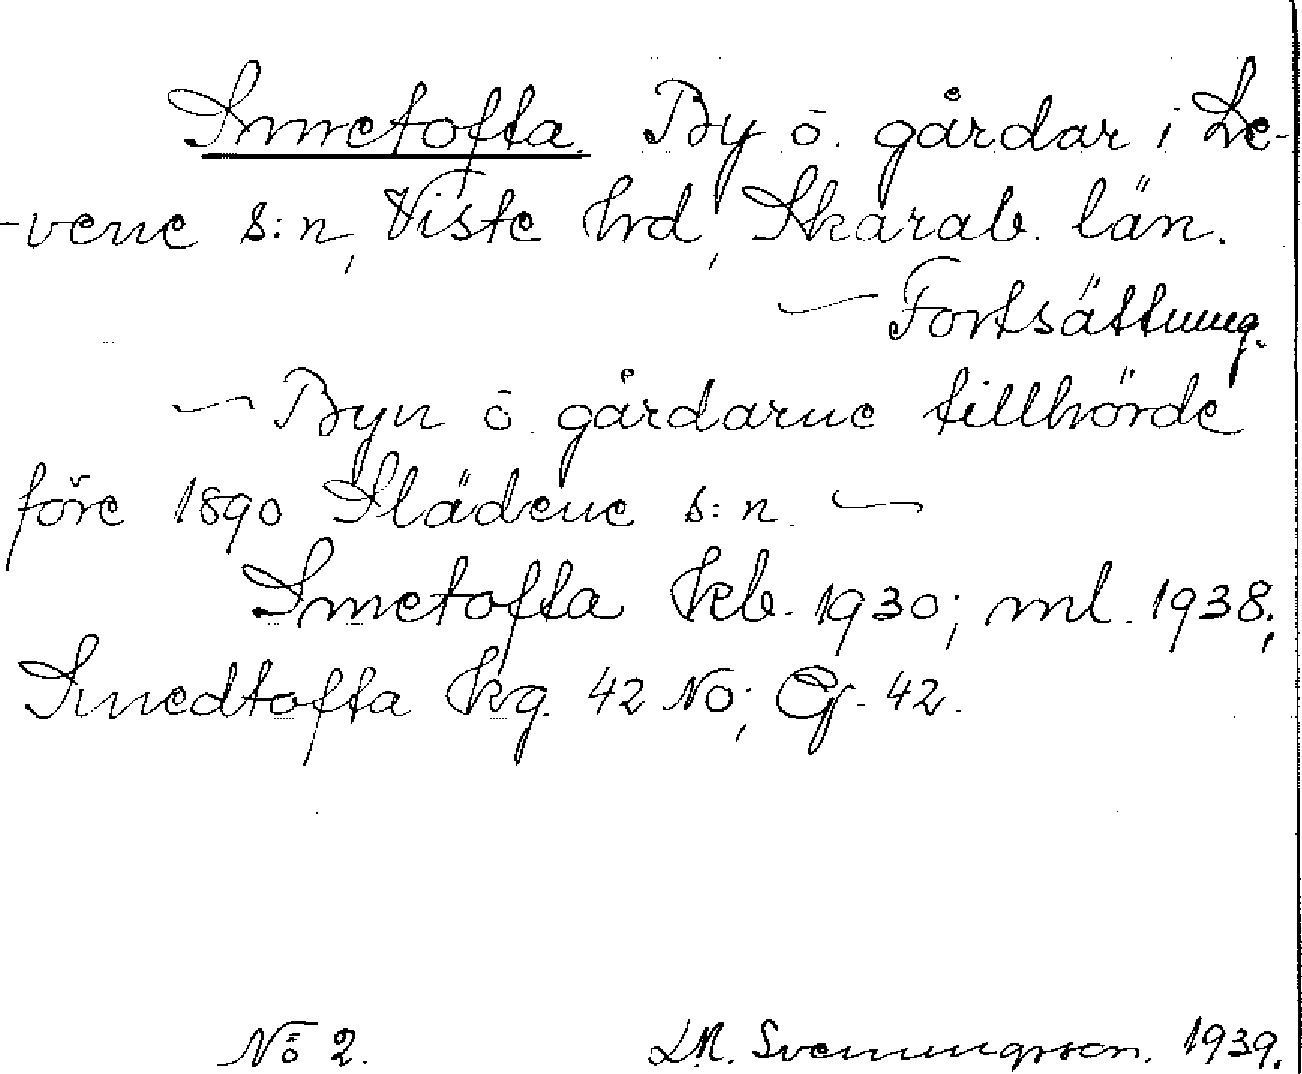 Smetofta. By o. gårdar i Le-
-vene s:n, Viste hrd, Skarab. län.
— Fortsättning.
— Byn o. gårdarne tillhörde
före 1890 Slädene s:n. —
Smetofta kb. 1930; ml. 1938;
Smedtofta kg. 42 No; G. 42.
No 2. L.M. Svenungsson. 1939.